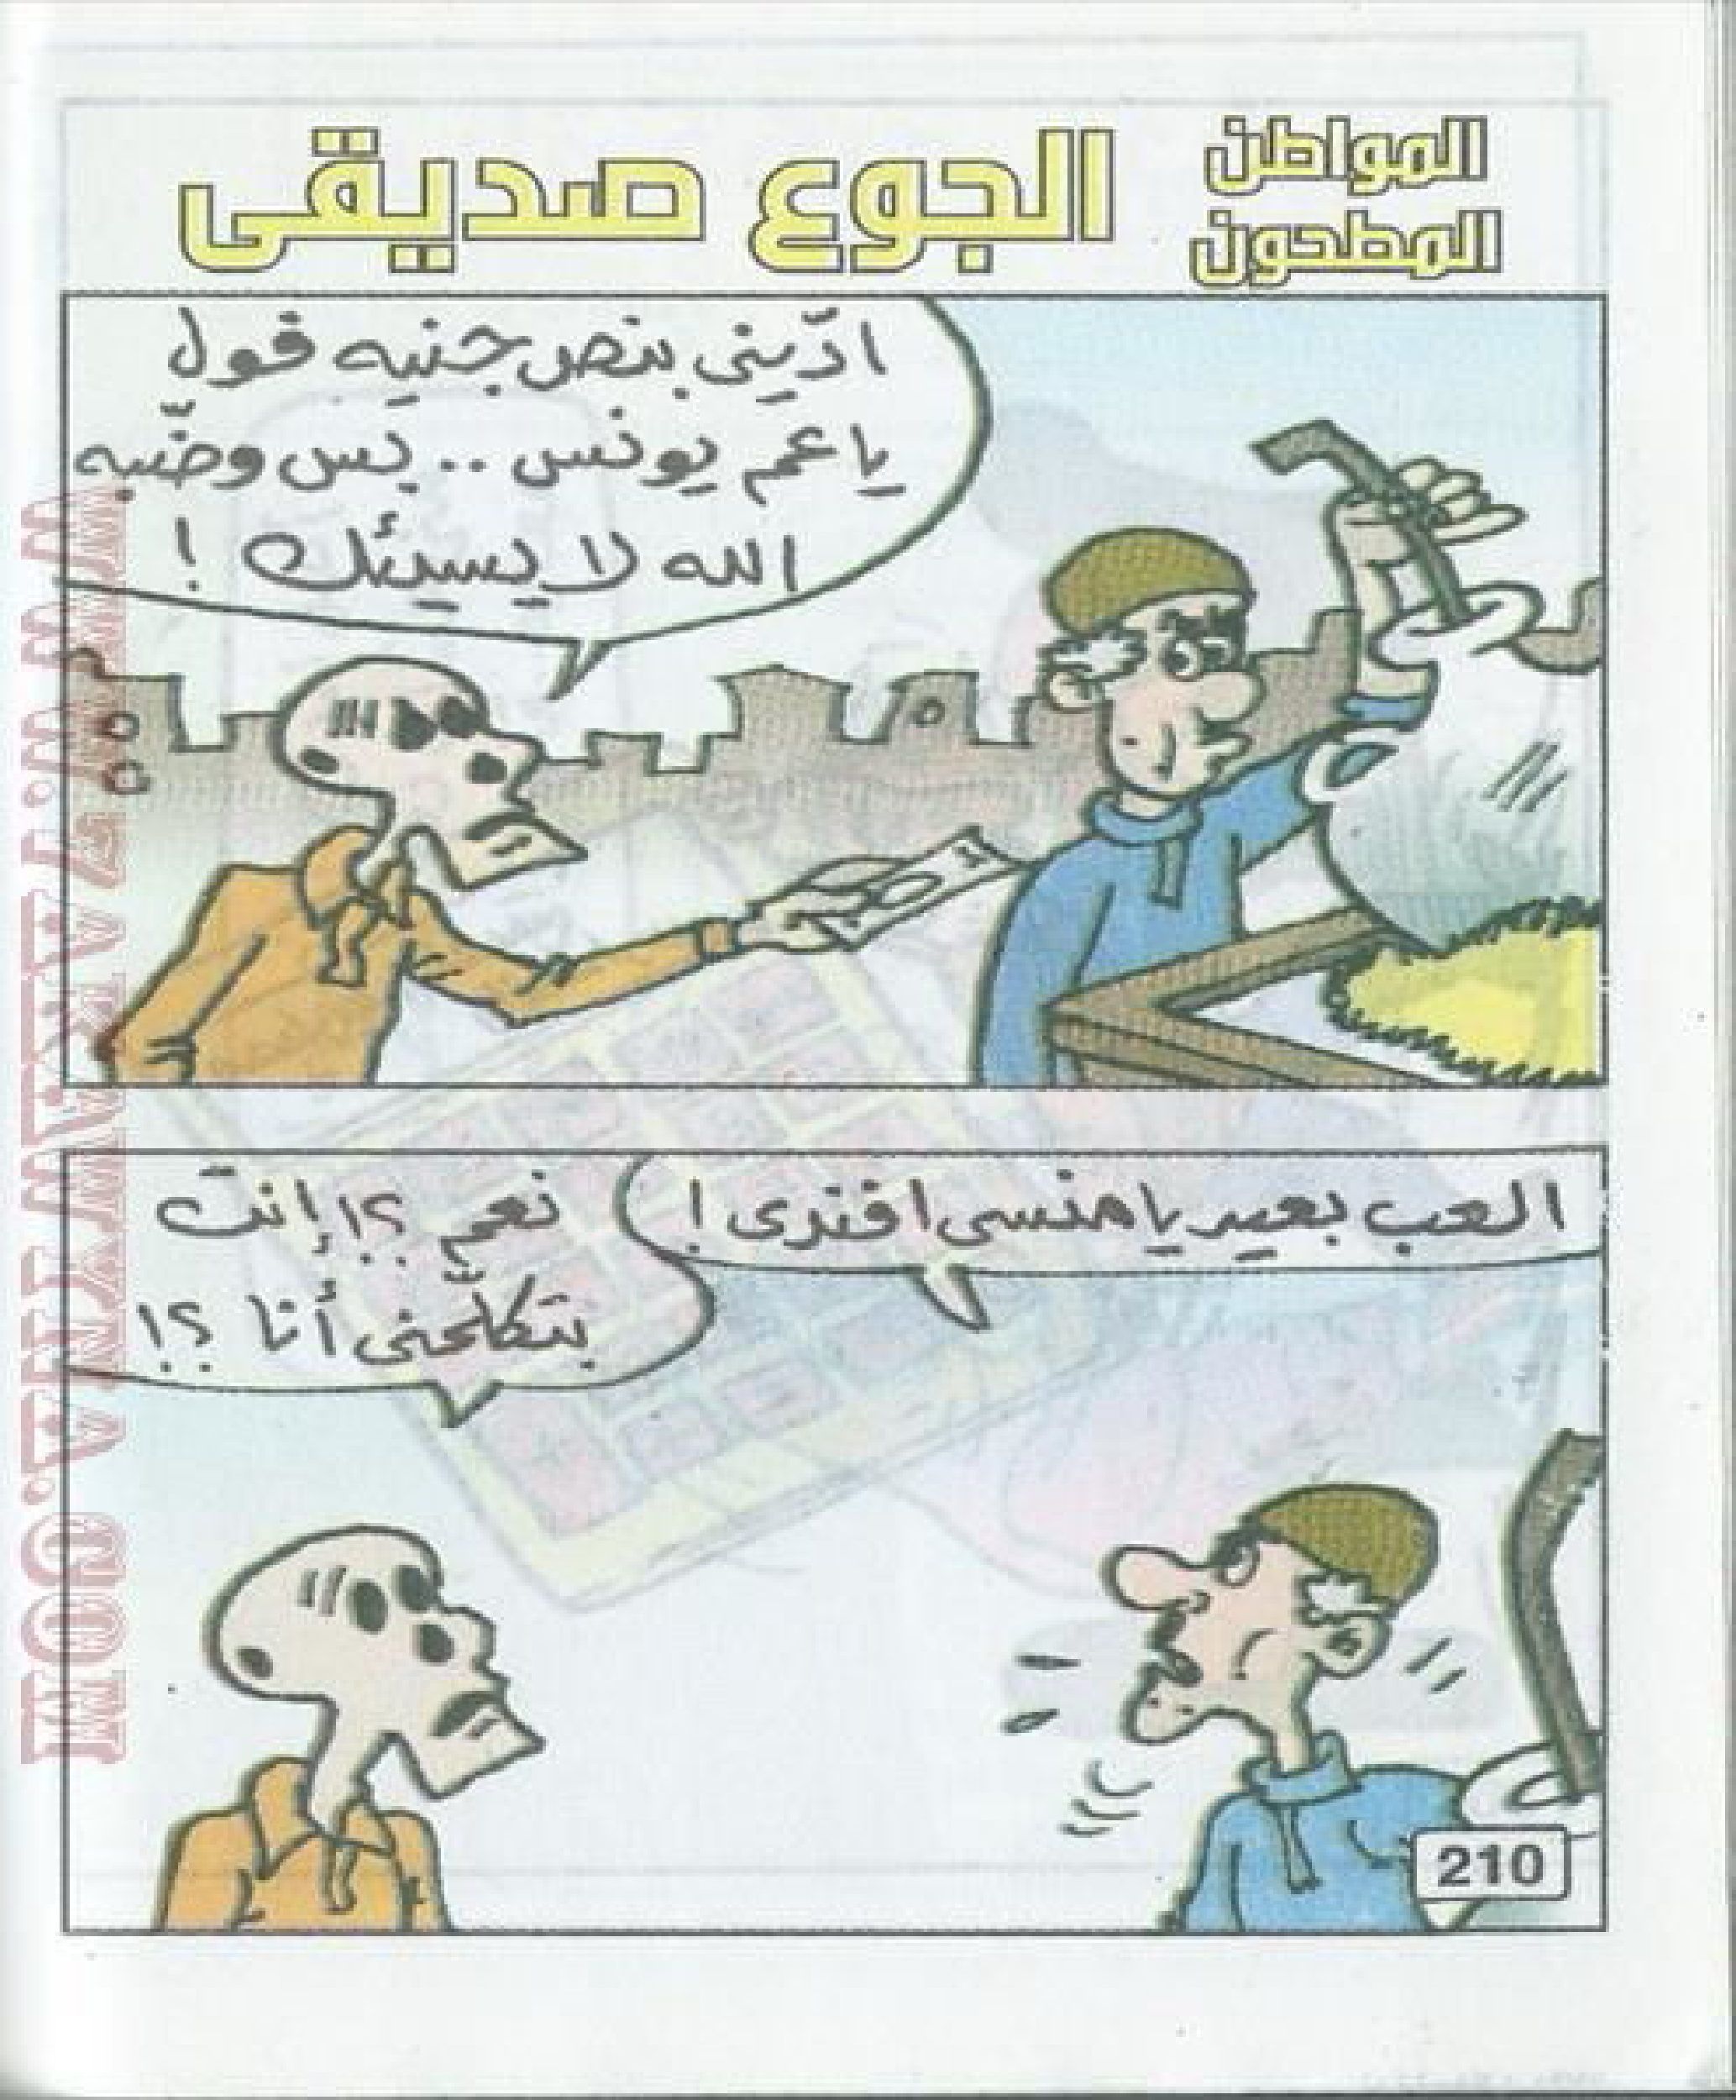 المواطن
المطحون
الجوع صديقى
ادّينى بنص جنيه فول
ياعم يونس .. بس وضّبه
الله لا يسيئك !
العب بعيد يا منسى افندى !
نعم ؟! إنت
بتكلّمنى أنا ؟!
210